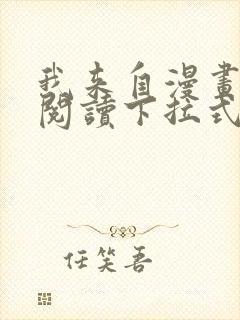 我来自漫畫
閱讀下拉式
任笑吾